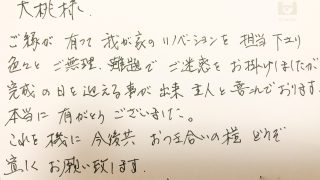 大桃様.
ご縁が有って我が家のリノベーションを担当下さり
色々とご無理、難題でご迷惑をお掛けしましたが
完成の日を迎える事が出来主人と喜んでおります.
本当に有がとうございました。
これを機に今後共お付き合いの程どうぞ
宜しくお願い致します.